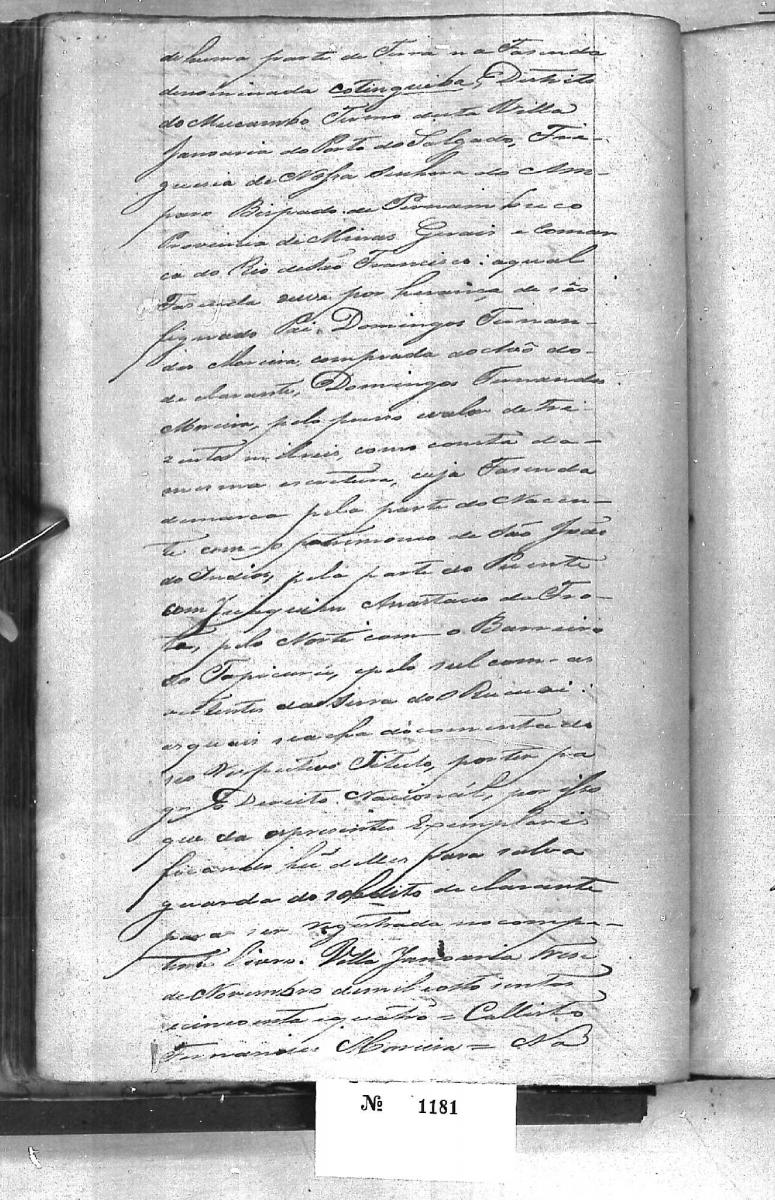 de huma parte de Terra na Fasenda
denominada cotingueiba, Districto
do Mucambo Termo desta Villa
Januaria do Porto do Salgado, Fre-
guesia de Nossa Senhora do Am-
paro Bispado de Pernambuco
Provincia de Minas Gerais e Comar
ca do Rio de São Francisco: aqual
Fasenda ouve por herança, de seo
finado Pai Domingos Fernan-
des Moreira, comprada do
declarante, Domingos Fernandes
Moreira, pelo preço e valor de tre-
zentos mil reis, como consta da-
mesma escritura, cuja Fasenda
demarca pela parte do Nacen-
te com-o patrimonio de São João
do Indios, pela parte do Puente
com Joaquim Anastacio da Fro-
ta, pelo Norte com o Barreiro
do Tapicuru, epelo sul com-as
vertentes da Serra do
asquais seacha documentado
seo Respectivo Titulo, por ter pa
go o Direito Nacional, por isso
que da apresente Exemplares
ficando hũ delles para salva
guarda do sobredito declarante
para ser registrada no compe-
tente Livro. Villa Januaria trese
de Novembro de mil oito sentos
e cincoenta e quatro = Callisto
Fernandes Moreira = Na
Nº 1181